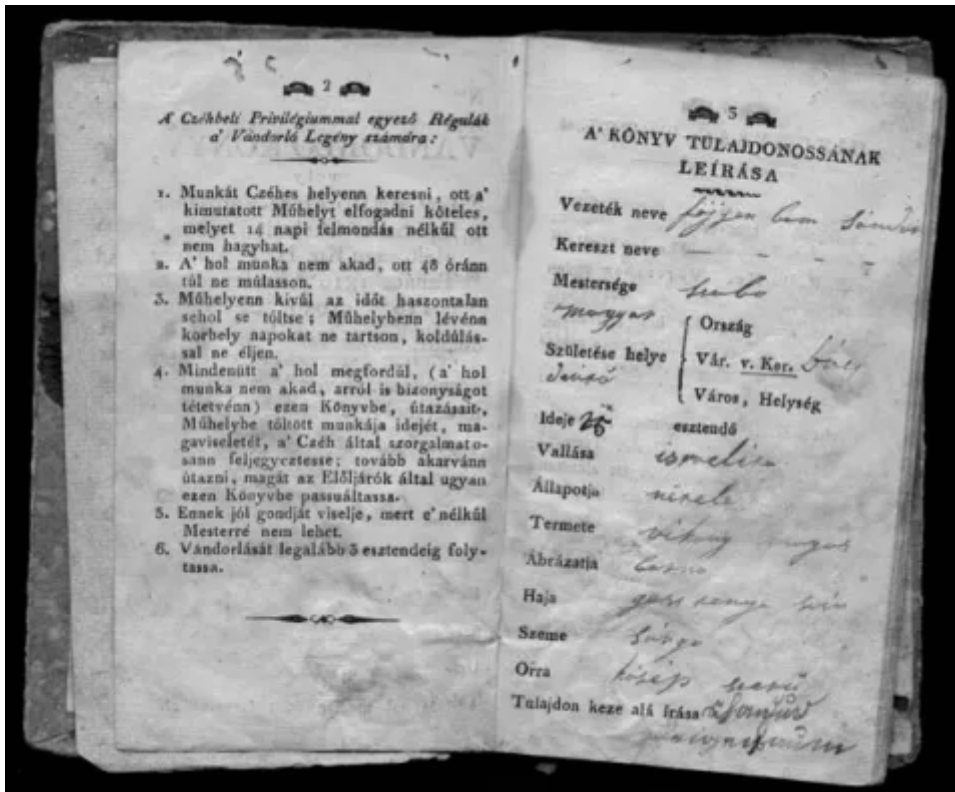 2
A' Czéhbeli Privilégiummal egyező Régulák
a' Vándorló Legény számára:
1. Munkát Czéhes helyenn keresni, ott a'
kimutatott Műhelyt elfogadni köteles,
melyet 14 napi felmondás nélkűl ott
nem hagyhat.
2. A' hol munka nem akad, ott 48 óránn
túl ne múlasson.
3. Műhelyenn kivűl az időt haszontalan
sehol se tőltse; Műhelybenn lévénn
korhely napokat ne tartson, koldúlás-
sal ne éljen.
4. Mindenűtt a' hol megfordúl, (a' hol
munka nem akad, arról is bizonyságot
tétetvénn) ezen Könyvbe, útazásait,
Műhelybe tőltött munkája idejét, ma-
gaviseletét, a' Czéh által szorgalmato-
sann feljegyeztesse; tovább akarvánn
útazni, magát az Előljárók által ugyan
ezen Könyvbe passuáltassa.
5. Ennek jól gondját viselje, mert e' nélkűl
Mesterré nem lehet.
6. Vándorlását legalább 3 esztendeig foly-
tassa.
3
A' KÖNYV TULAJDONOSSÁNAK
LEÍRÁSA
Vezeték neve
Kereszt neve - - - -
Mestersége szabo
magyar Ország
Születése helye Vár. v. Ker.
Város, Helység
Ideje 25 esztendő
Vallása israelita
Állapotja
Termete magas
Ábrázatja barna
Haja
Szeme sárga
Orra közép szerű
Tulajdon keze alá írása